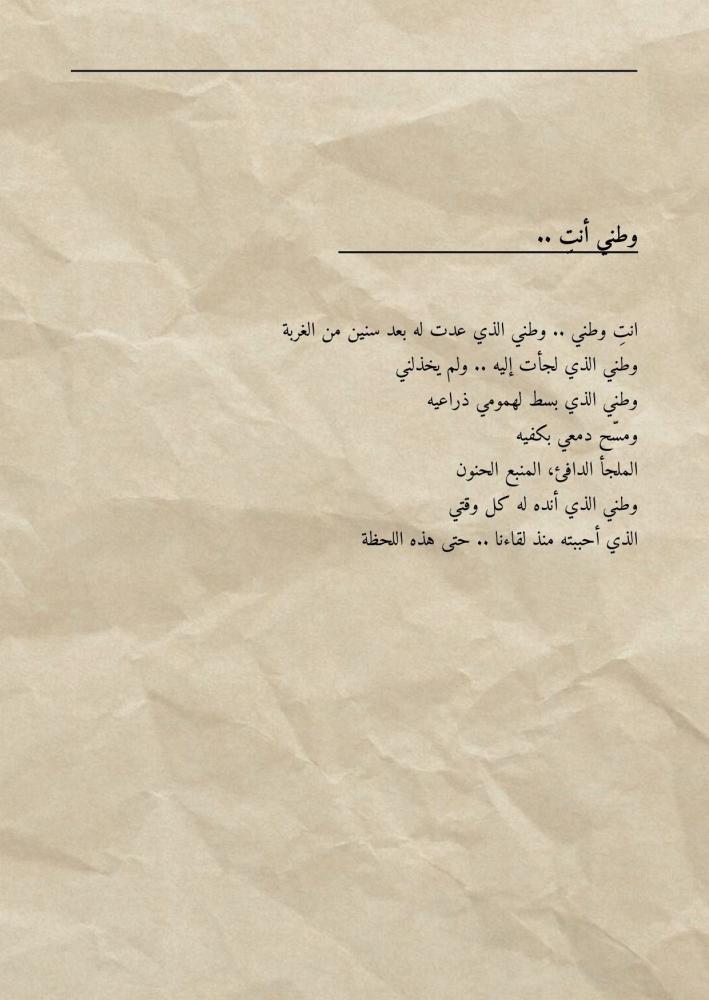 وطني أنتِ ..
انتِ وطني .. وطني الذي عدت له بعد سنين من الغربة
وطني الذي لجأت إليه .. ولم يخذلني
وطني الذي بسط لهمومي ذراعيه
ومسّح دمعي بكفيه
الملجأ الدافئ، المنبع الحنون
وطني الذي أنده له كل وقتي
الذي أحببته منذ لقاءنا .. حتى هذه اللحظة